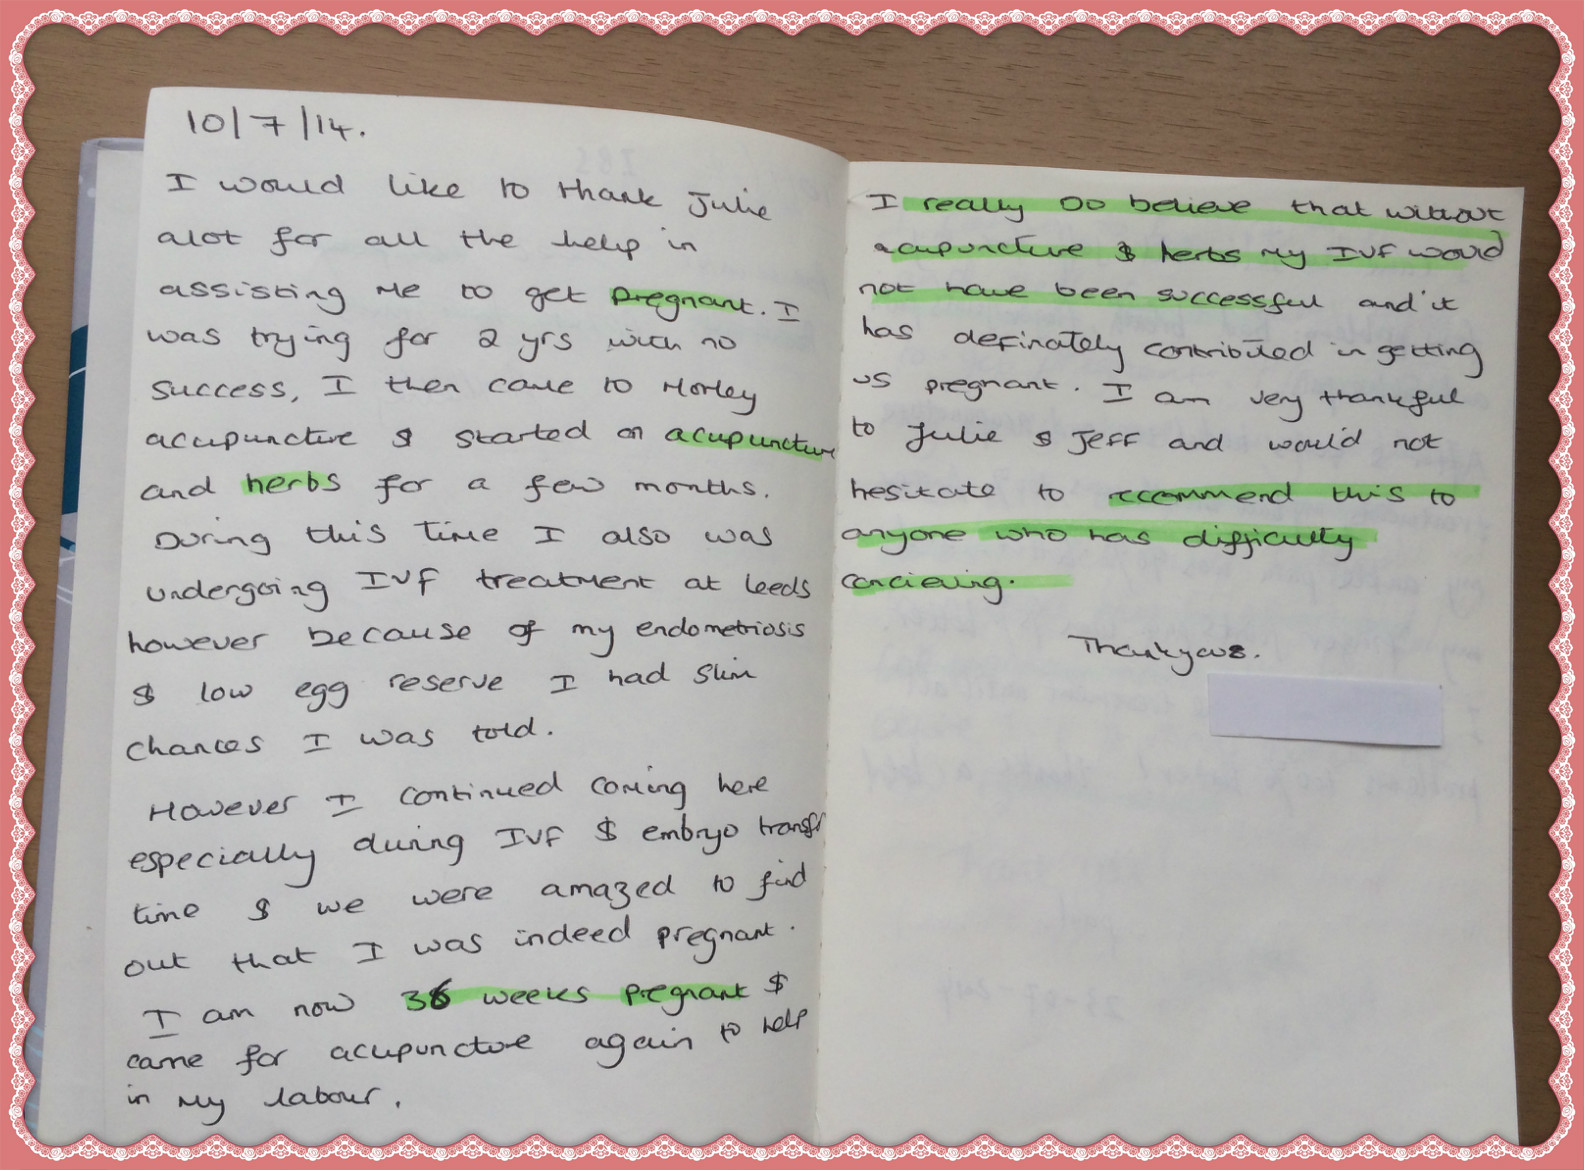 10/7/14.
I would like to thank Julie
alot for all the help in
assisting me to get pregnant. I
was trying for 2 yrs with no
success, I then came to Morley
acupuncture & started on acupuncture
and herbs for a few months.
During this time I also was
undergoing IVF treatment at Leeds
however because of my endometriosis
& low egg reserve I had slim
chances I was told.
However I continued coming here
especially during IVF & embryo transfr
time & we were amazed to find
out that I was indeed pregnant.
I am now 36 weeks pregnant &
came for acupuncture again to help
in my labour.
I really DO believe that without
acupuncture & herbs my IVF would
not have been successful and it
has definately contributed in getting
us pregnant. I am very thankful
to Julie & Jeff and would not
hesitate to reccommend this to
anyone who has difficulty
concieving.
Thankyou.